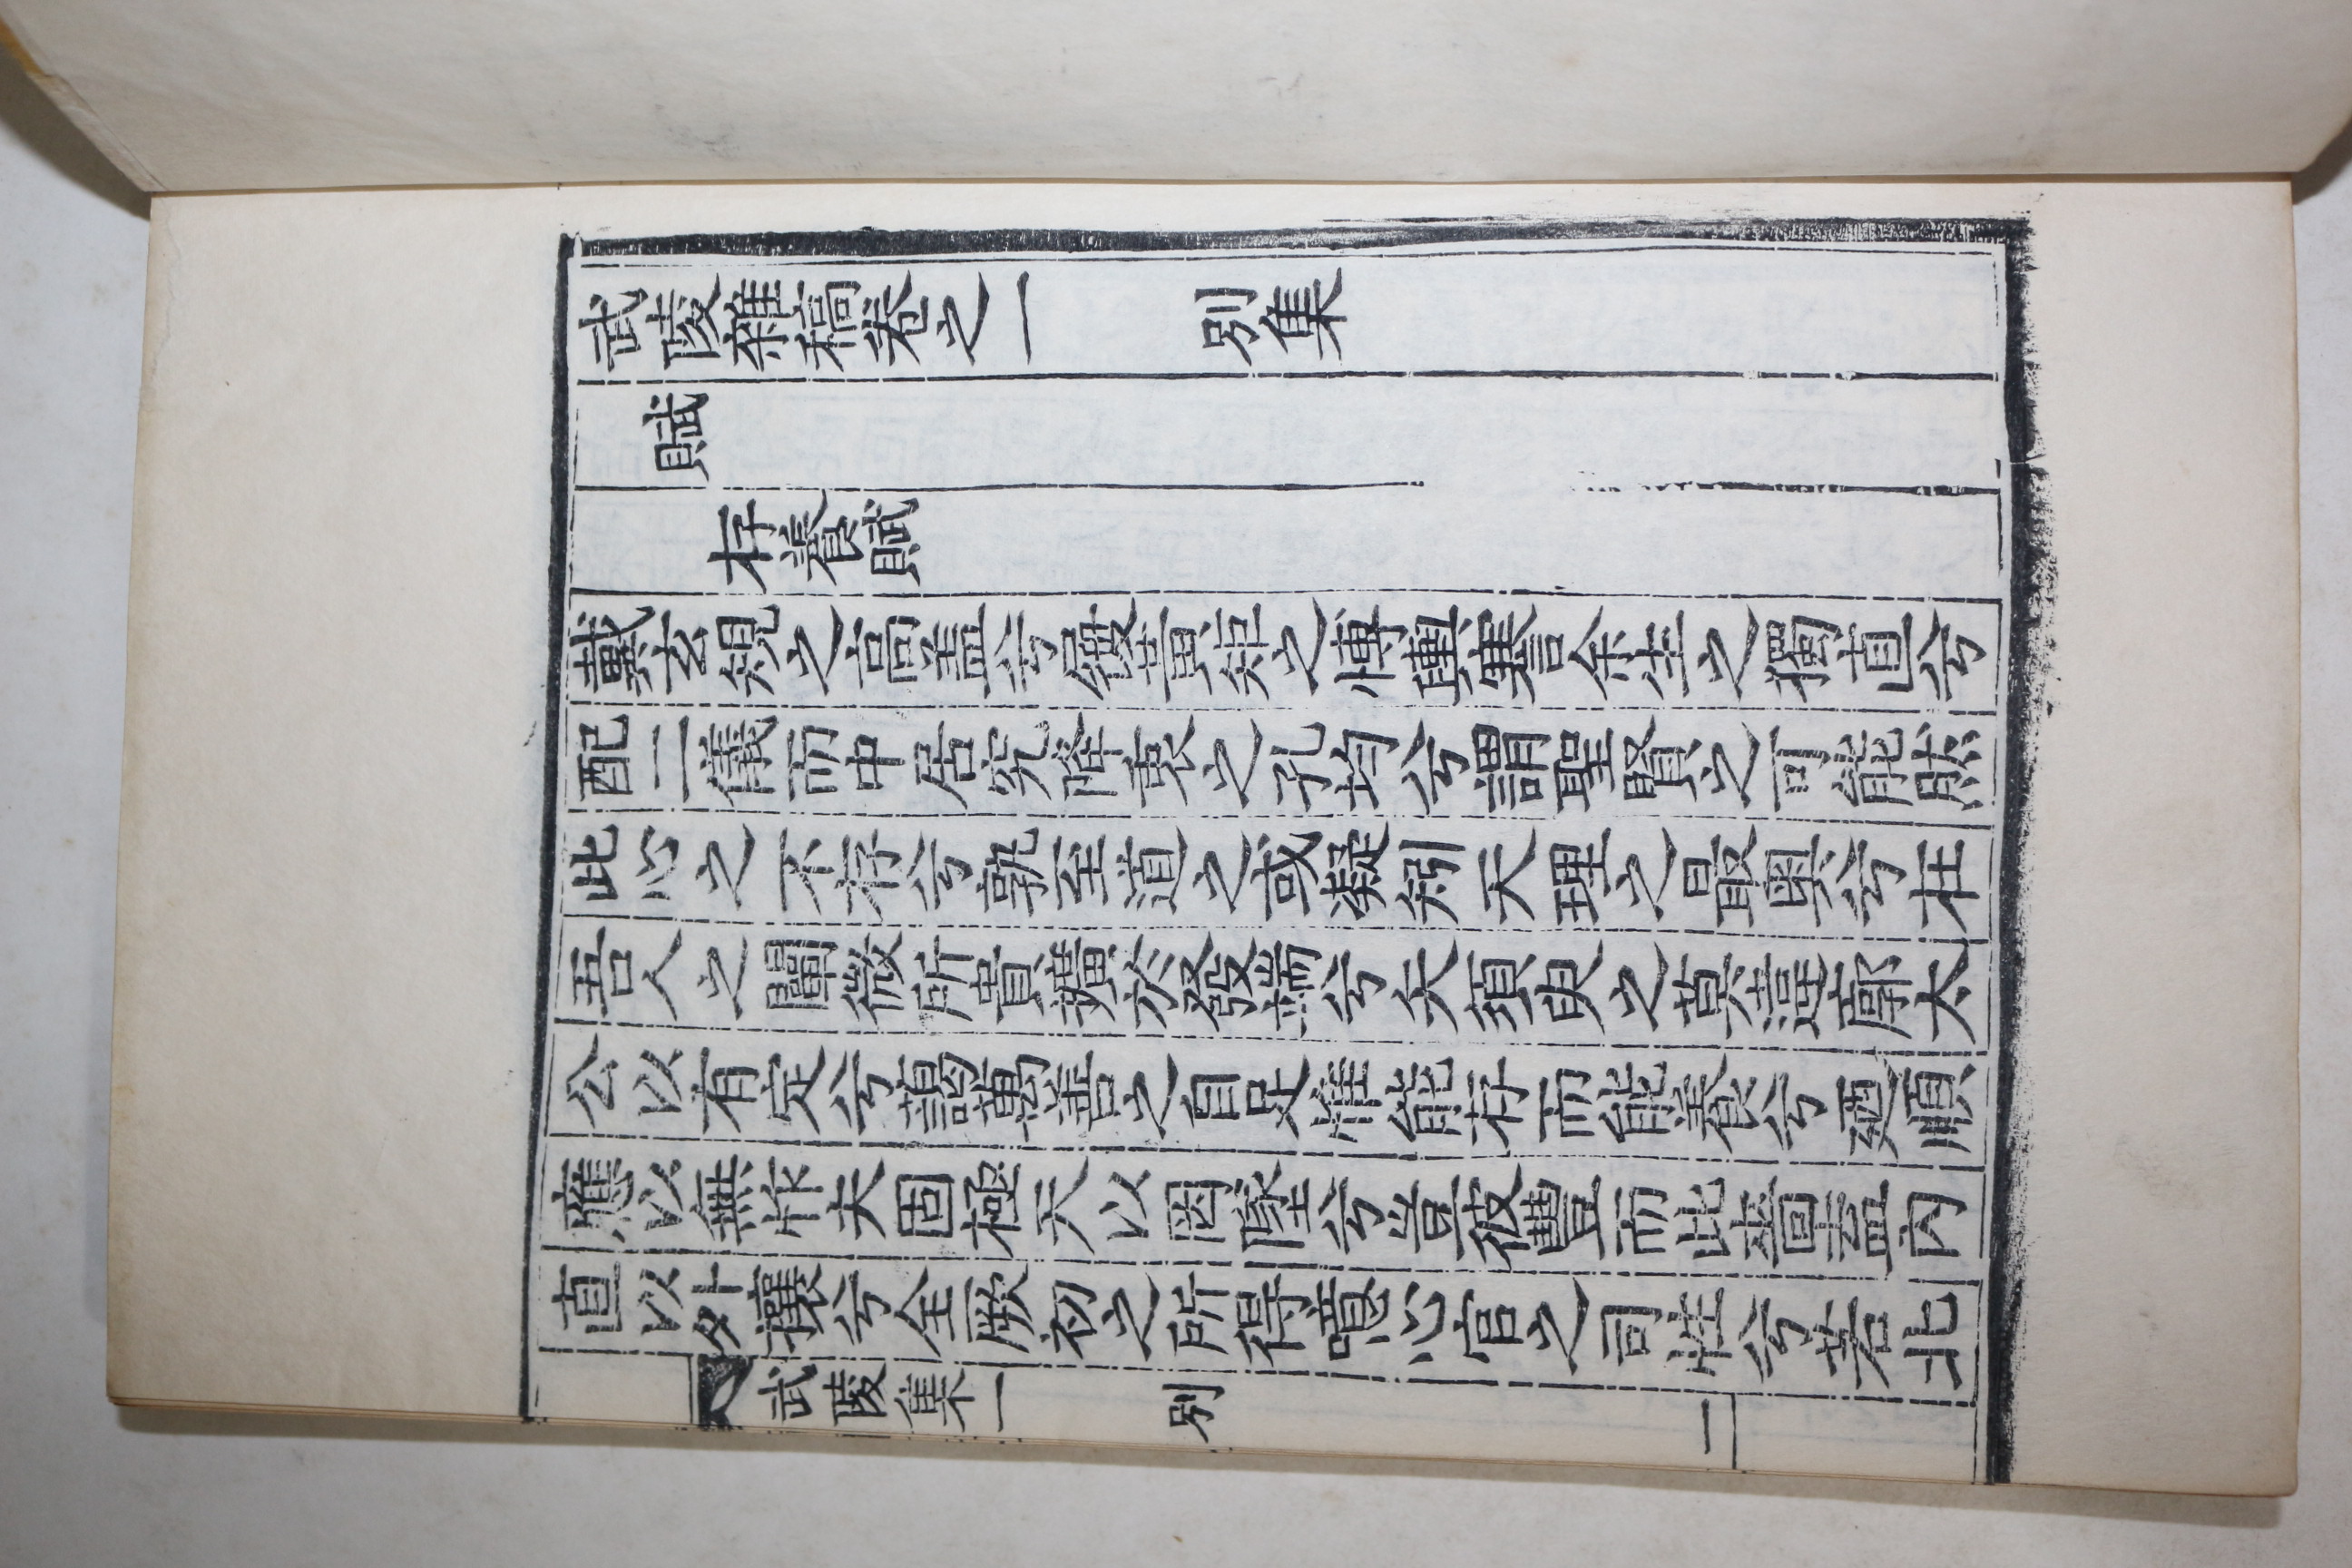 武陵雜稿卷之一 別集
賦
存養賦
戴玄䂓之高盖兮履黃矩之博輿謇余生之獨直兮
配二儀而中居究降衷之孔均兮謂聖賢之可能然
此心之不存兮孰至道之或凝矧天理之最奧兮在
吾人之闡微所貴擴於發端兮矢須臾之莫違廓太
公以有定兮藹萬善之自足惟能存而能養兮廼順
應以無怍夫固極天以罔墜兮豈彼豐而此嗇盍內
直以外攘兮全厥初之所得噫心官之司性兮若北
武陵集一 別 二